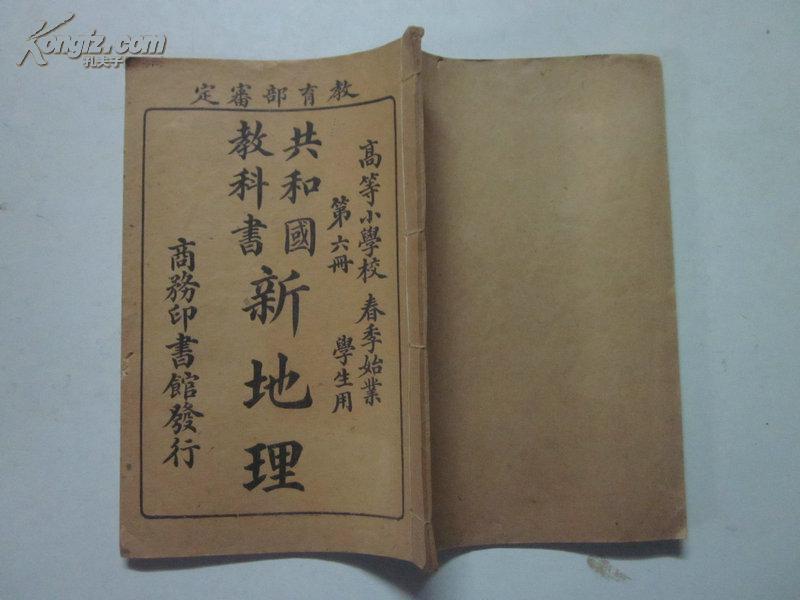 教育部審定
高等小學校 春季始業
第六冊 學生用
共和國
教科書
新地理
商務印書館發行
Kongfz.com
孔夫子